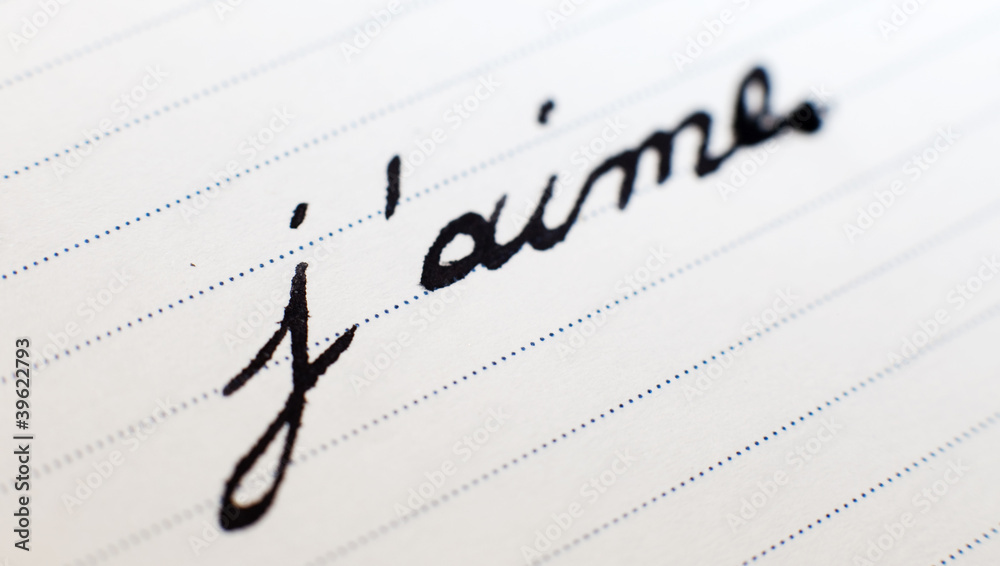 j'aime
Adobe Stock | #39622793